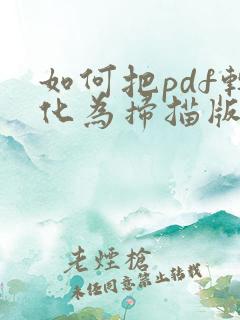 如何把pdf轉
化為掃描版
老煙槍
未任同意禁止轉載